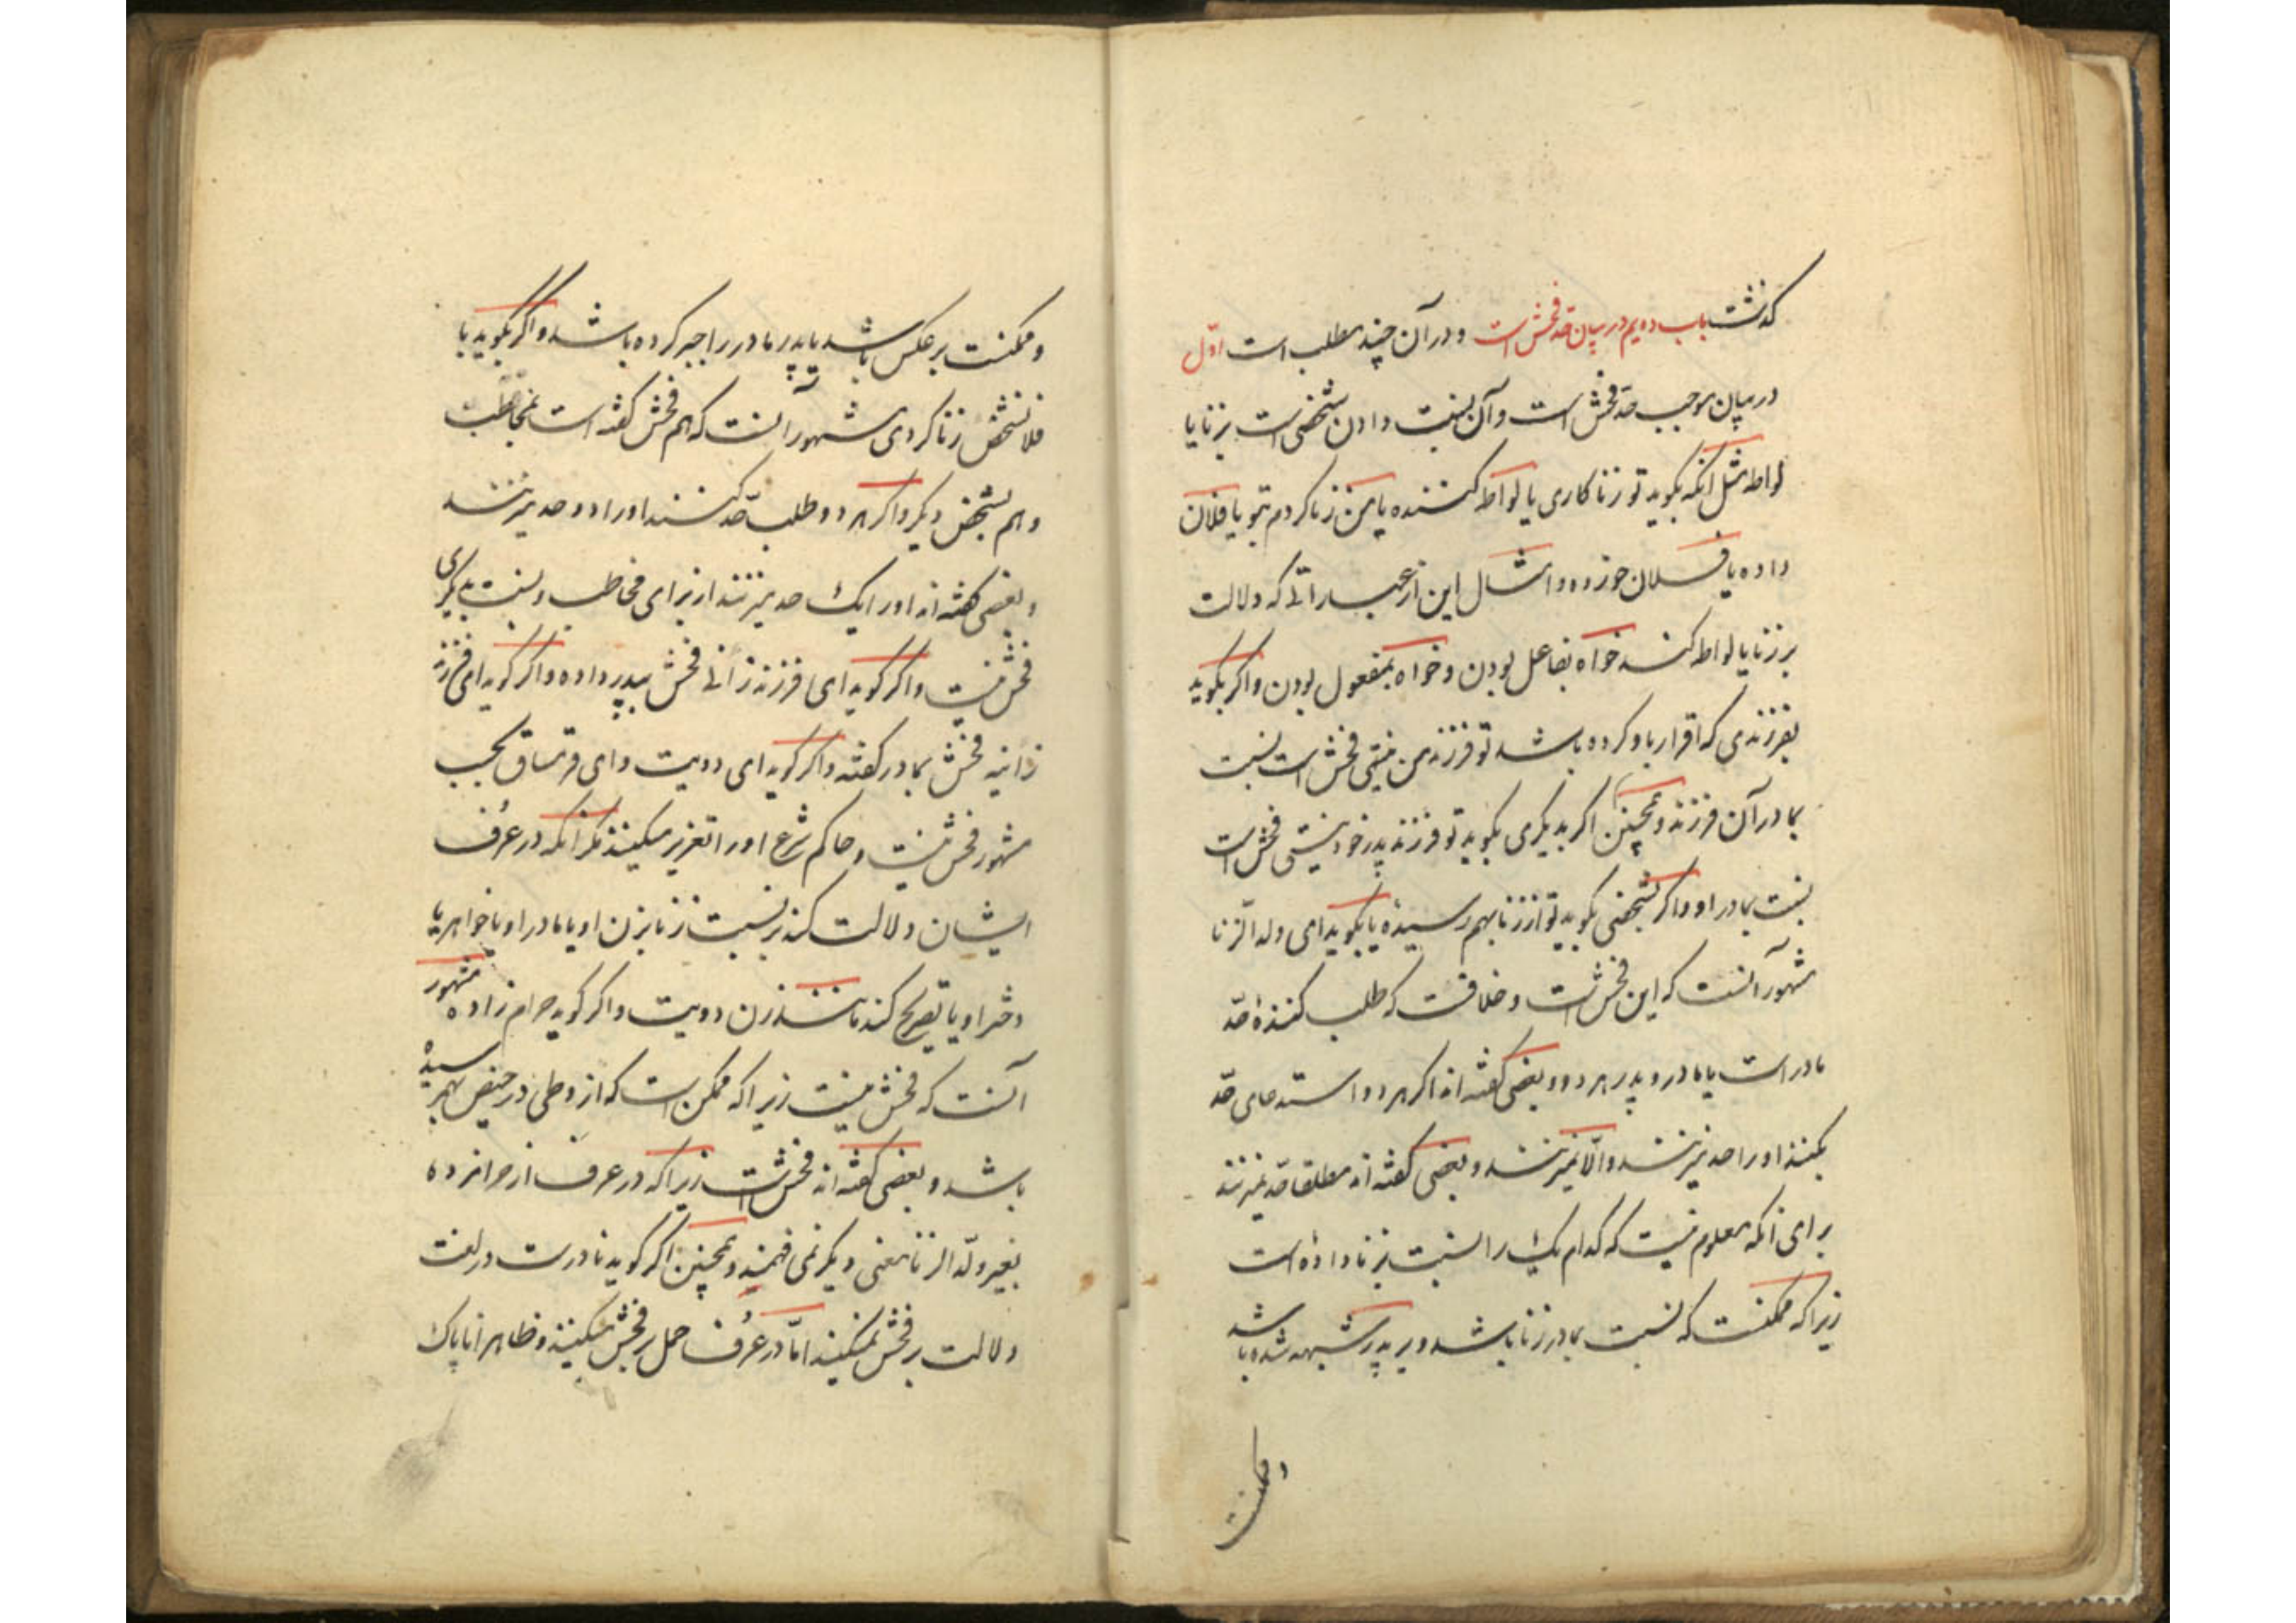 گذشت باب دویم در بیان حد فحش است و در آن چند مطلب است اوّل
در بیان موجب حد فحش است و آن نسبت دادن شخصی است بزنا یا
لواطه مثل انکه بگوید تو زناکاری یا لواط کننده یا من زنا کردم بتو یا فلان
داده یا فلان خورده و امثال این از عباراتی که دلالت
بر زنا یا لواطه کند خواه بفاعل بودن و خواه بمفعول بودن و اگر بگوید
بفرزندی که اقرار باو کرده باشد تو فرزند من نیستی فحش است نسبت
بمادر آن فرزند و همچنین اگر بدیگری بگوید تو فرزند پدر خود نیستی فحش است
نسبت بمادر او و اگر بشخصی بگوید تو از زنا بهم رسیدهٔ یا بگوید ای ولد الزنا
مشهور آنست که این فحش است و خلافست که طلب کنندهٔ حدّ
مادر است یا مادر و پدر هر دو و بعضی گفته اند اگر هر دو استدعای حدّ
بکنند او را حد میزنند و الّا نمیزنند و بعضی گفته اند مطلقا حد نمیزنند
برای انکه معلوم نیست که کدام یک را نسبت بزنا داده است
زیرا که ممکنست که نسبت بمادر زنا باشد و بر پدر مشتبه شده باشد
و ممکنست
و ممکنست برعکس باشد یا پدر مادر را جبر کرده باشد و اگر بگوید با
فلان شخص زنا کردی مشهور آنست که هم فحش گفته است بمخاطب
و هم بشخص دیگر و اگر هر دو طلب حدّ کنند او را دو حد میزنند
و بعضی گفته اند او را یک حد میزنند از برای مخاطب و نسبت بدیگری
فحش نیست و اگر گوید ای فرزند زانی فحش بپدر داده و اگر گوید ای فرزند
زانیه فحش بمادر گفته و اگر گوید ای دویت و ای قرتساق بحسب
مشهور فحش نیست و حاکم شرع او را تعزیر میکند مگر آنکه در عُرف
ایشان دلالت کند بر نسبت زنا بزن او یا مادر او یا خواهر یا
دختر او یا تصریح کند مانند زن دویت و اگر گوید حرام زاده مشهور
آنست که فحش نیست زیرا که ممکن است که از وطی در حیض بهم رسیده
باشد و بعضی گفته اند فحش است زیرا که در عرف از حرامزده
بغیر ولد الزنا معنی دیگر نمی فهمند و همچنین اگر گوید نادرست در لغت
دلالت بر فحش نمیکند امّا در عُرف حمل بر فحش میکنند و ظاهرا ناپاک